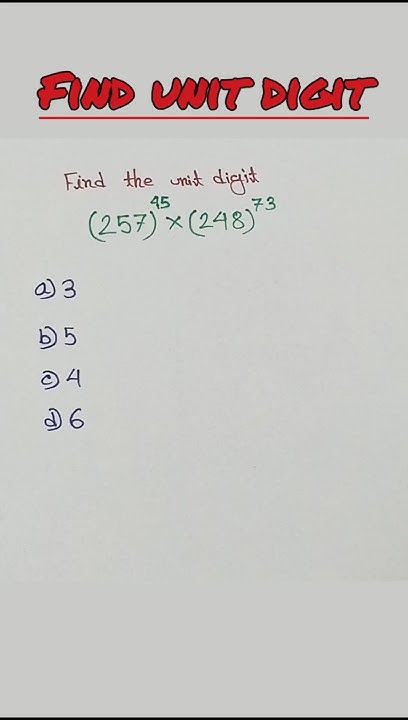 FIND UNIT DIGIT
Find the unit digit
(257)^45 × (248)^73
a) 3
b) 5
c) 4
d) 6